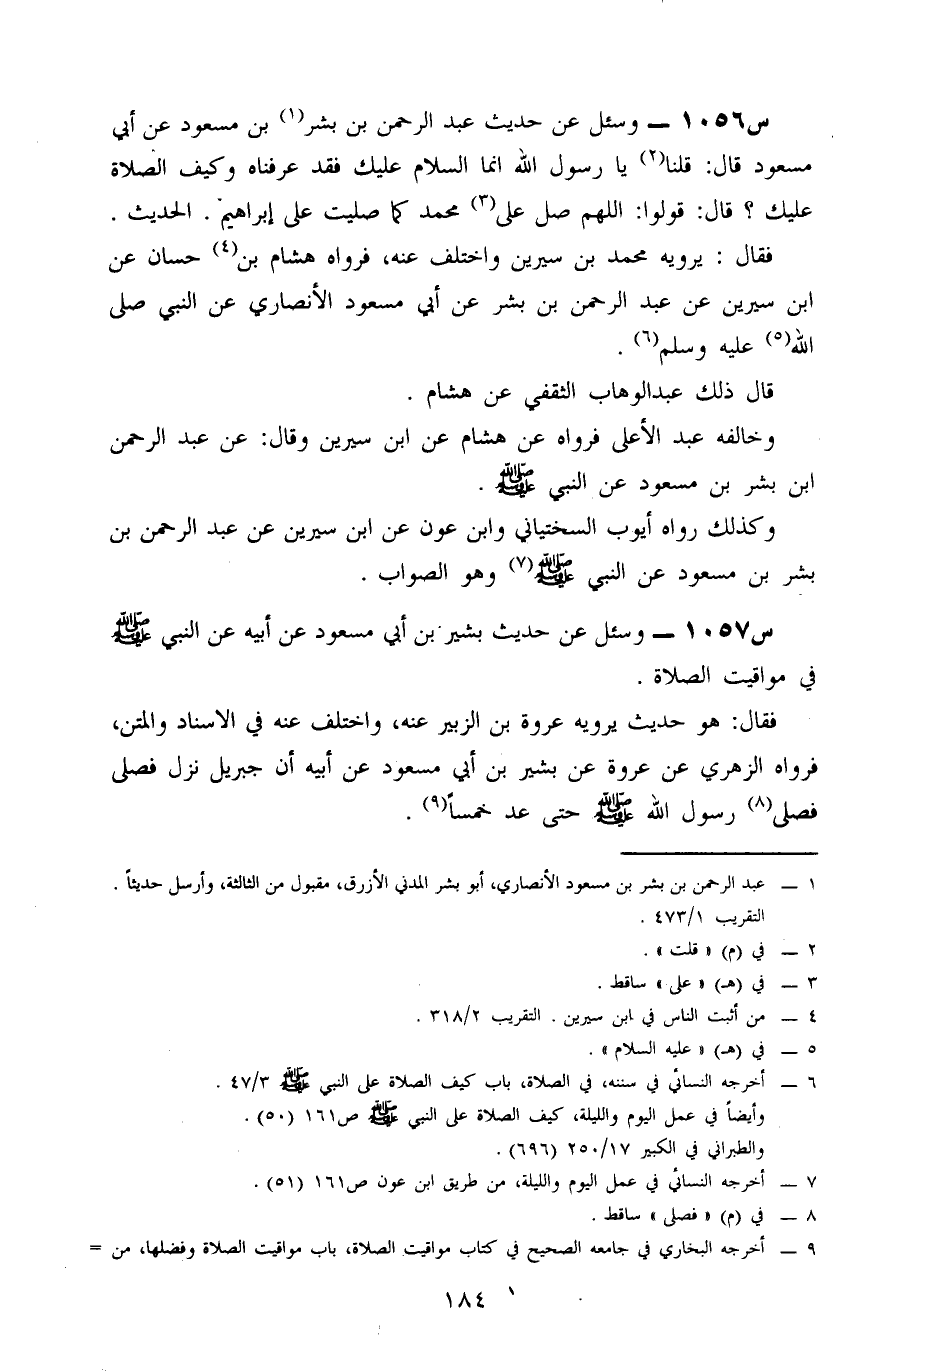 س١٠٥٦ ـ وسئل عن حديث عبد الرحمن بن بشر(١) بن مسعود عن أبي
مسعود قال: قلنا(٢) يا رسول الله انما السلام عليك فقد عرفناه وكيف الصلاة
عليك ؟ قال: قولوا: اللهم صل على(٣) محمد كما صليت على إبراهيم . الحديث .
فقال : يرويه محمد بن سيرين واختلف عنه، فرواه هشام بن(٤) حسان عن
ابن سيرين عن عبد الرحمن بن بشر عن أبي مسعود الأنصاري عن النبي صلى
الله(٥) عليه وسلم(٦) .
قال ذلك عبدالوهاب الثقفي عن هشام .
وخالفه عبد الأعلى فرواه عن هشام عن ابن سيرين وقال: عن عبد الرحمن
ابن بشر بن مسعود عن النبي ﷺ .
وكذلك رواه أيوب السختياني وابن عون عن ابن سيرين عن عبد الرحمن بن
بشر بن مسعود عن النبي ﷺ(٧) وهو الصواب .
س١٠٥٧ ـ وسئل عن حديث بشير بن أبي مسعود عن أبيه عن النبي ﷺ
في مواقيت الصلاة .
فقال: هو حديث يرويه عروة بن الزبير عنه، واختلف عنه في الاسناد والمتن،
فرواه الزهري عن عروة عن بشير بن أبي مسعود عن أبيه أن جبريل نزل فصلى
فصلى(٨) رسول الله ﷺ حتى عد خمساً(٩) .
١ ـ عبد الرحمن بن بشر بن مسعود الأنصاري، أبو بشر المدني الأزرق، مقبول من الثالثة، وأرسل حديثاً .
التقريب ٤٧٣/١ .
٢ ـ في (م) « قلت » .
٣ ـ في (هـ) « على » ساقط .
٤ ـ من أثبت الناس في ابن سيرين . التقريب ٣١٨/٢ .
٥ ـ في (هـ) « عليه السلام » .
٦ ـ أخرجه النسائي في سننه، في الصلاة، باب كيف الصلاة على النبي ﷺ ٤٧/٣ .
وأيضاً في عمل اليوم والليلة، كيف الصلاة على النبي ﷺ ص١٦١ (٥٠) .
والطبراني في الكبير ٢٥٠/١٧ (٦٩٦) .
٧ ـ أخرجه النسائي في عمل اليوم والليلة، من طريق ابن عون ص١٦١ (٥١) .
٨ ـ في (م) « فصلى » ساقط .
٩ ـ أخرجه البخاري في جامعه الصحيح في كتاب مواقيت الصلاة، باب مواقيت الصلاة وفضلها، من =
١٨٤